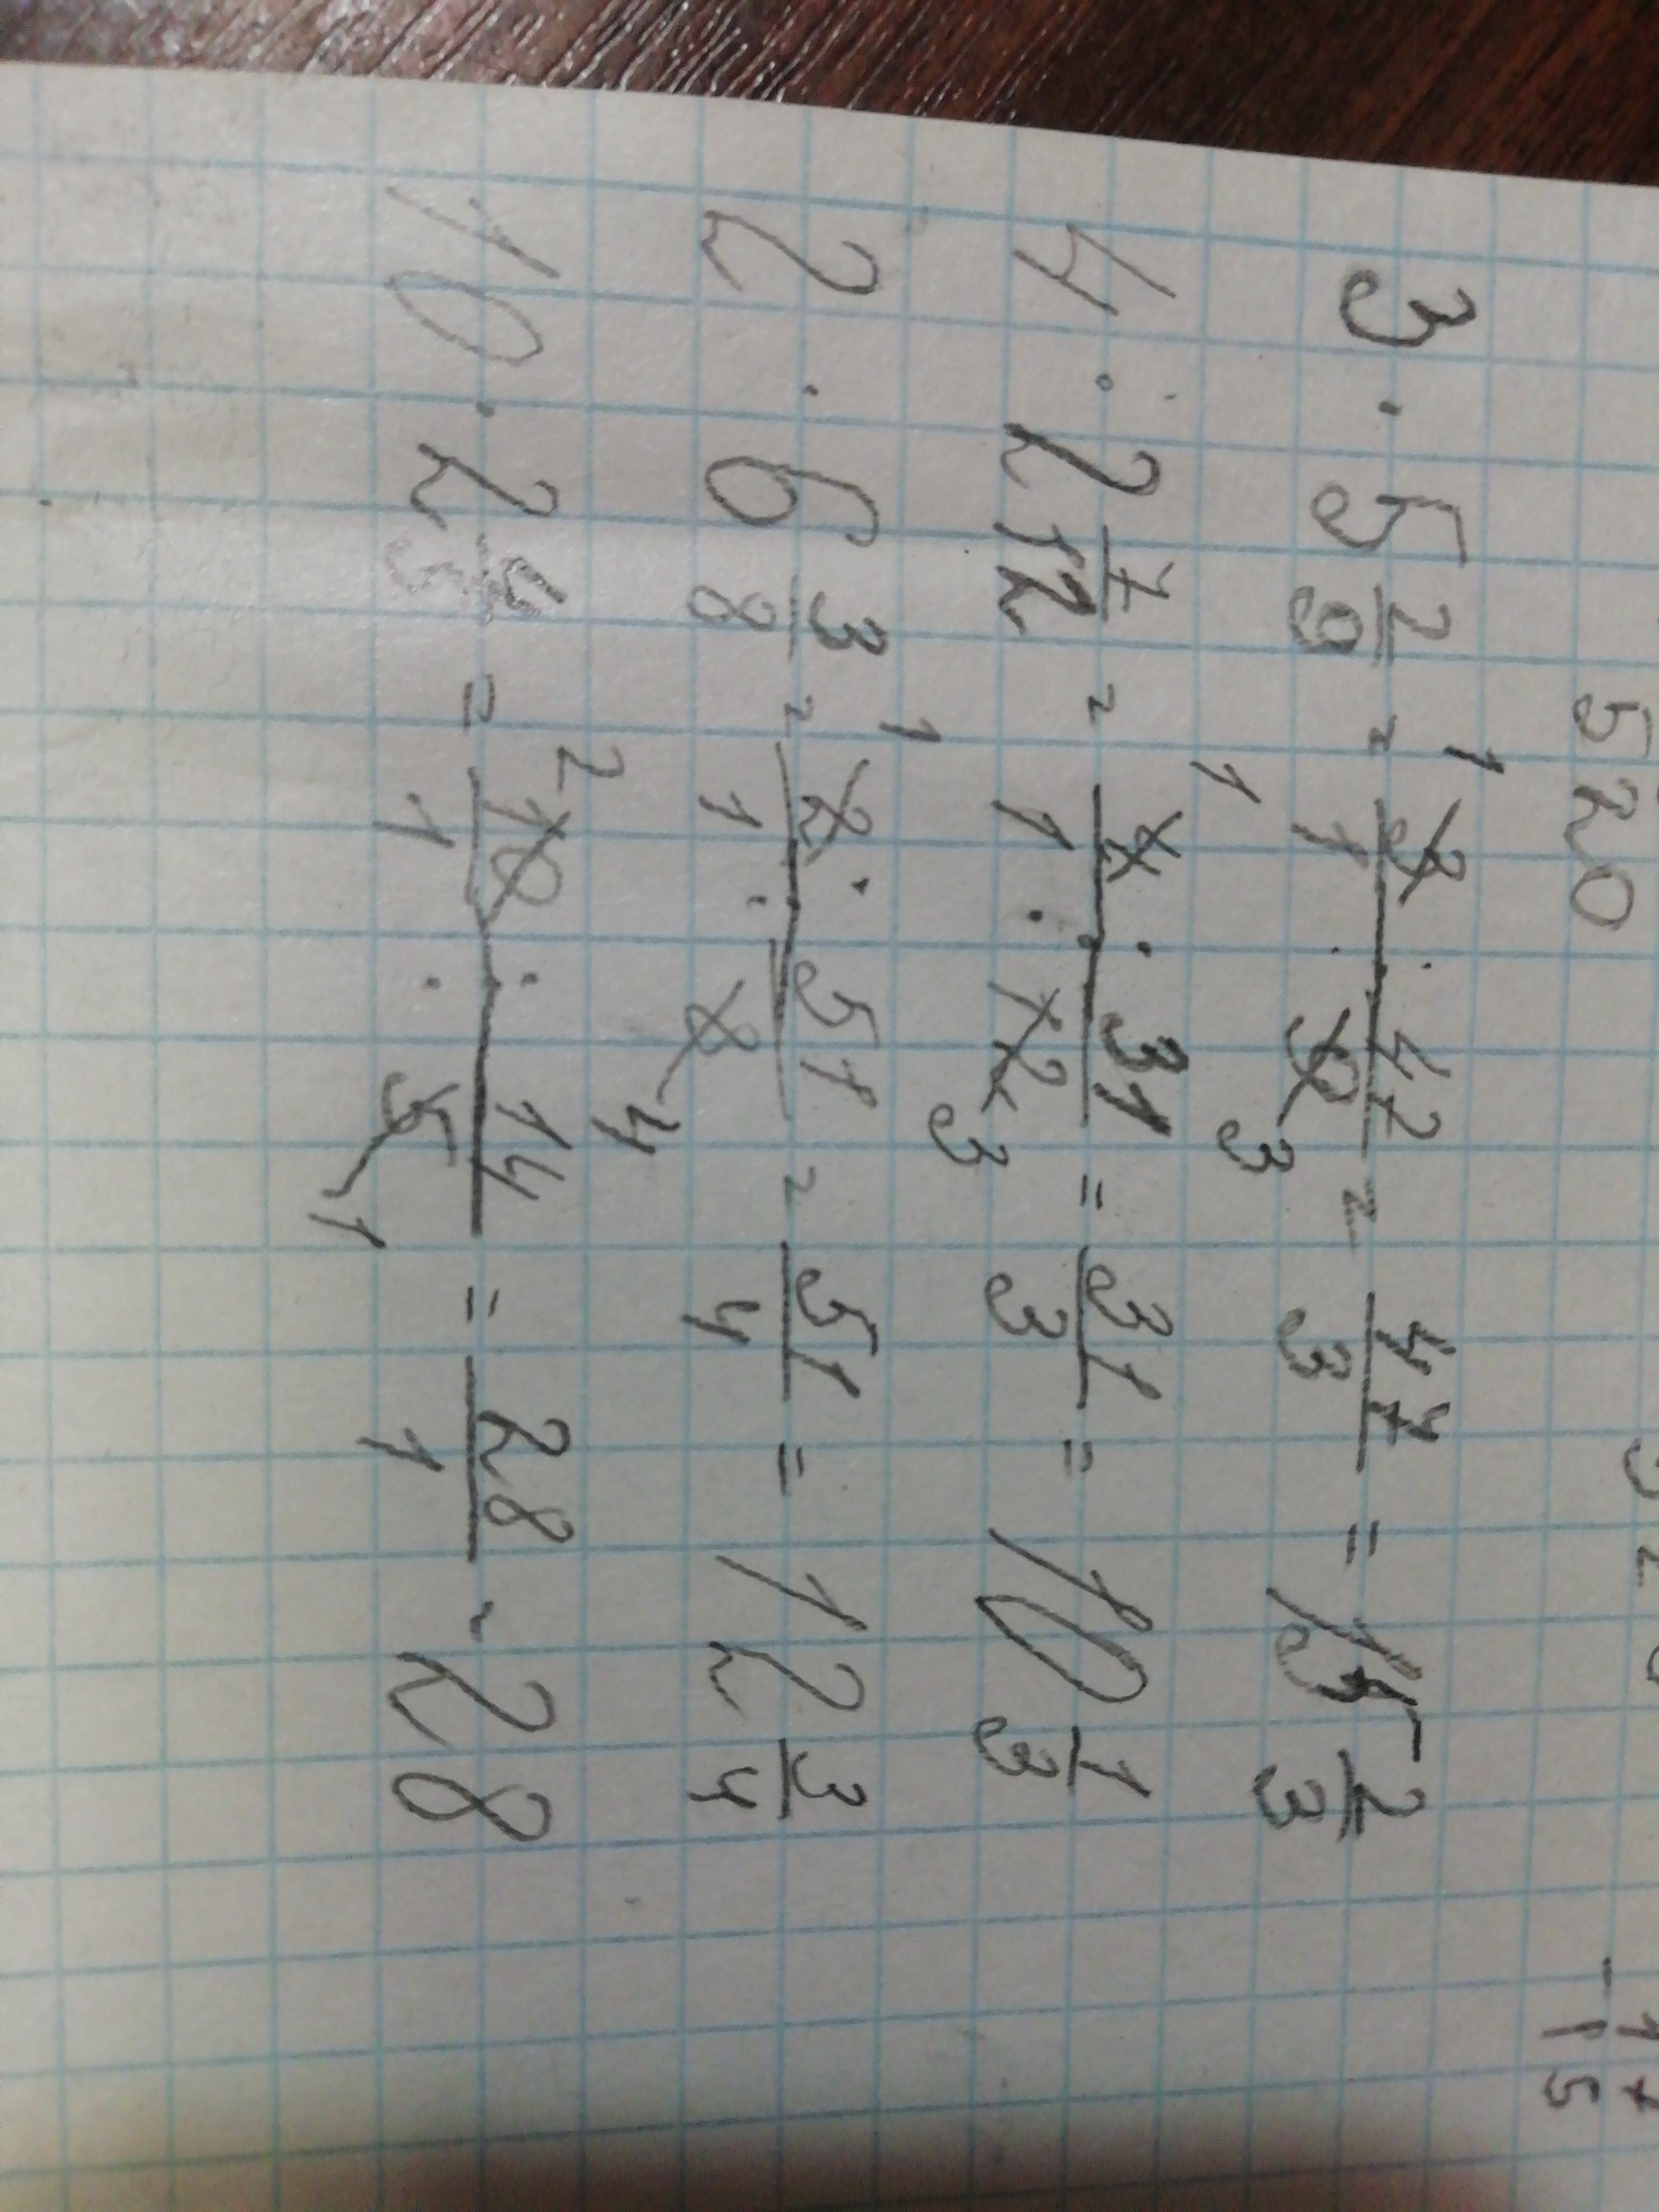 5 20
3 · 5 2/9 = 3 · 47 / 1 · 9 = 47/3 = 15 2/3
1 3
4 · 2 7/12 = 4 · 31 / 1 · 12 = 31/3 = 10 1/3
1 3
2 · 6 3/8 = 2 · 51 / 1 · 8 = 51/4 = 12 3/4
1 4
10 · 2 4/5 = 10 · 14 / 1 · 5 = 28/1 = 28
2 1